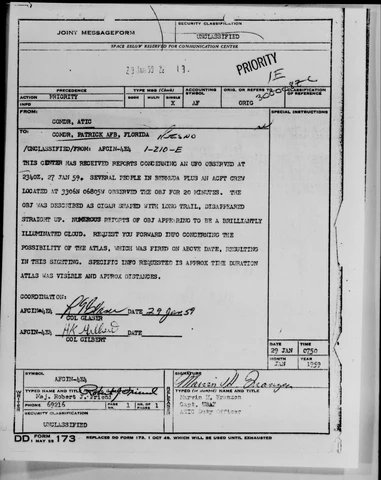 JOINT MESSAGEFORM
SECURITY CLASSIFICATION
UNCLASSIFIED
SPACE BELOW RESERVED FOR COMMUNICATION CENTER
PRIORITY
1E
PRECEDENCE
TYPE MSG (Check)
ACCOUNTING SYMBOL
ORIG. OR REFERS TO
CLASSIFICATION OF REFERENCE
ACTION PRIORITY
BOOK MULTI SINGLE
INFO
X AF
FROM:
SPECIAL INSTRUCTIONS
COMDR, ATIC
TO:
COMDR, PATRICK AFB, FLORIDA
/UNCLASSIFIED/FROM: AFCIN-4E4 1-210-E
THIS CENTER HAS RECEIVED REPORTS CONCERNING AN UFO OBSERVED AT
2340Z, 27 JAN 59. SEVERAL PEOPLE IN BERMUDA PLUS AN ACFT CREW
LOCATED AT 3306N 06805W OBSERVED THE OBJ FOR 20 MINUTES. THE
OBJ WAS DESCRIBED AS CIGAR SHAPED WITH LONG TRAIL, DISAPPEARED
STRAIGHT UP. NUMEROUS REPORTS OF OBJ APPEARING TO BE A BRILLIANTLY
ILLUMINATED CLOUD. REQUEST YOU FORWARD INFO CONCERNING THE
POSSIBILITY OF THE ATLAS, WHICH WAS FIRED ON ABOVE DATE, RESULTING
IN THIS SIGHTING. SPECIFIC INFO REQUESTED IS APPROX TIME DURATION
ATLAS WAS VISIBLE AND APPROX DISTANCES.
COORDINATION:
AFCIN-4E4 DATE 29 Jan 59
COL GLASER
AFCIN-4E4 H K Gilbert DATE
COL GILBERT
DATE TIME
29 JAN 0730
MONTH YEAR
JAN 1959
SYMBOL
AFCIN-4E4
SIGNATURE
TYPED NAME AND TITLE
Maj. Robert J. Friend
TYPED (or stamped) NAME AND TITLE
Capt. USAF
ATIC Duty Officer
PHONE 69216
PAGE NR. 1 NR. OF PAGES 1
SECURITY CLASSIFICATION
UNCLASSIFIED
DD FORM 1 MAY 55 173 REPLACES DD FORM 173, 1 OCT 49, WHICH WILL BE USED UNTIL EXHAUSTED